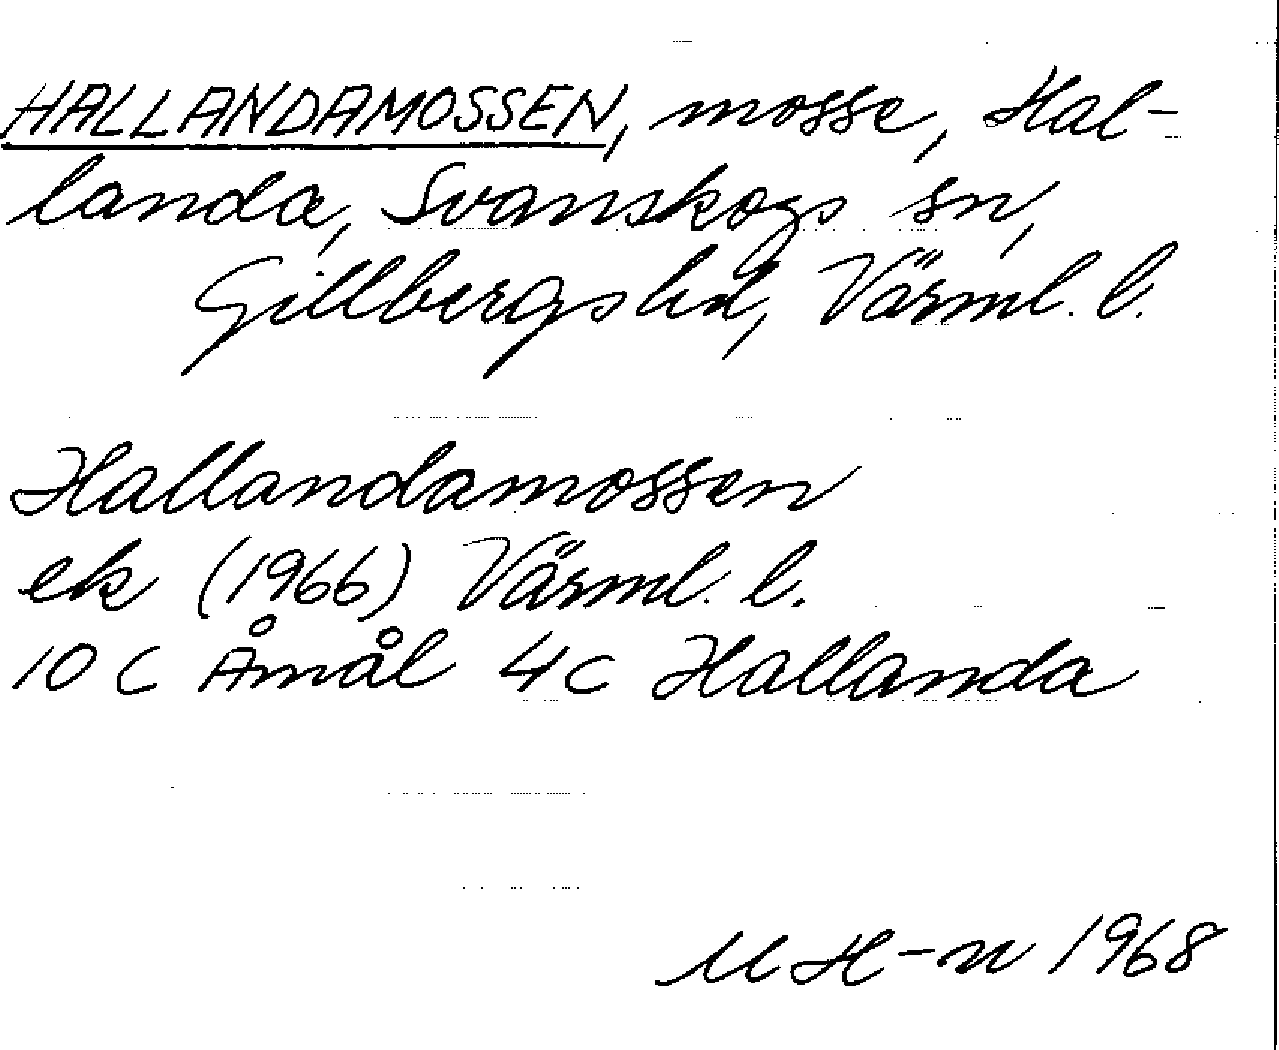 HALLANDAMOSSEN, mosse, Hal-
landa, Svanskogs sn,
Gillbergs hd, Värml. l.
Hallandamossen
ek (1966) Värml. l.
10 C Åmål 4c Hallanda
M H-n 1968